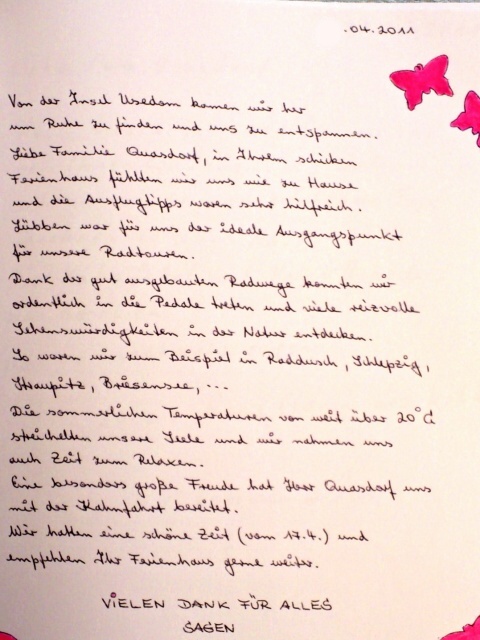 .04.2011
Von der Insel Usedom kamen wir her
um Ruhe zu finden und uns zu entspannen.
Liebe Familie Quasdorf, in Ihrem schicken
Ferienhaus fühlten wir uns wie zu Hause
und die Ausflugtipps waren sehr hilfreich.
Lübben war für uns der ideale Ausgangspunkt
für unsere Radtouren.
Dank der gut ausgebauten Radwege konnten wir
ordentlich in die Pedale treten und viele reizvolle
Sehenswürdigkeiten in der Natur entdecken.
So waren wir zum Beispiel in Raddusch, Schlepzig,
Straupitz, Briesensee, ...
Die sommerlichen Temperaturen von weit über 20°C
streichelten unsere Seele und wir nahmen uns
auch Zeit zum Relaxen.
Eine besonders große Freude hat Herr Quasdorf uns
mit der Kahnfahrt bereitet.
Wir hatten eine schöne Zeit (vom 17.4.) und
empfehlen Ihr Ferienhaus gerne weiter.
VIELEN DANK FÜR ALLES
SAGEN